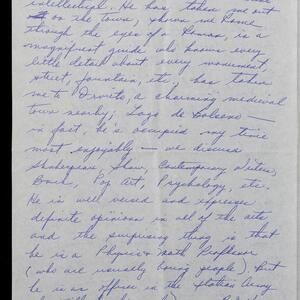 intellectual. He has taken me out
on the town, shown me Rome
through the eyes of a Roman, is a
magnificent guide who knows every
little detail about every monument,
street, fountain, etc., has taken
me to Orvieto, a charming medieval
town nearby; Lago de Bolseno —
in fact, he's occupied my time
most enjoyably — we discuss
Shakespeare, Shaw, Contemporary Writers,
Bach, Pop Art, Psychology, etc.
He is well versed and expresses
definite opinions in all of the arts
and the surprising thing is that
he is a Physics & Math Professor
(who are usually boring people). But
he is an officer in the Italian Army